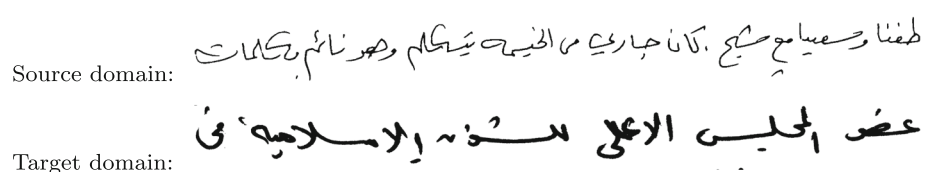 Source domain: طفنا وسعينا مع شيخ . كان جاري من الخيمه يتكلم وهو نائم بكلمات
Target domain: عضو المجلس الاعلى للشؤن الاسلاميه في